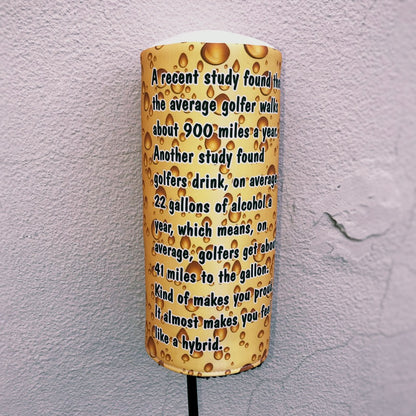 A recent study found the
the average golfer walks
about 900 miles a year.
Another study found
golfers drink, on average
22 gallons of alcohol a
year, which means, on
average, golfers get about
41 miles to the gallon.
Kind of makes you proud.
It almost makes you feel
like a hybrid.